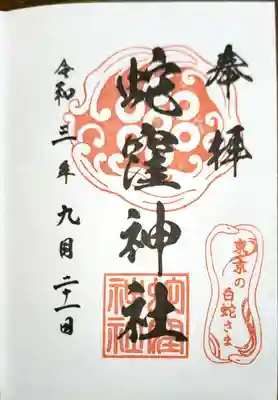 奉拝
東京の
白蛇さま
蛇窪神社
蛇窪
神社
令和三年九月二十一日